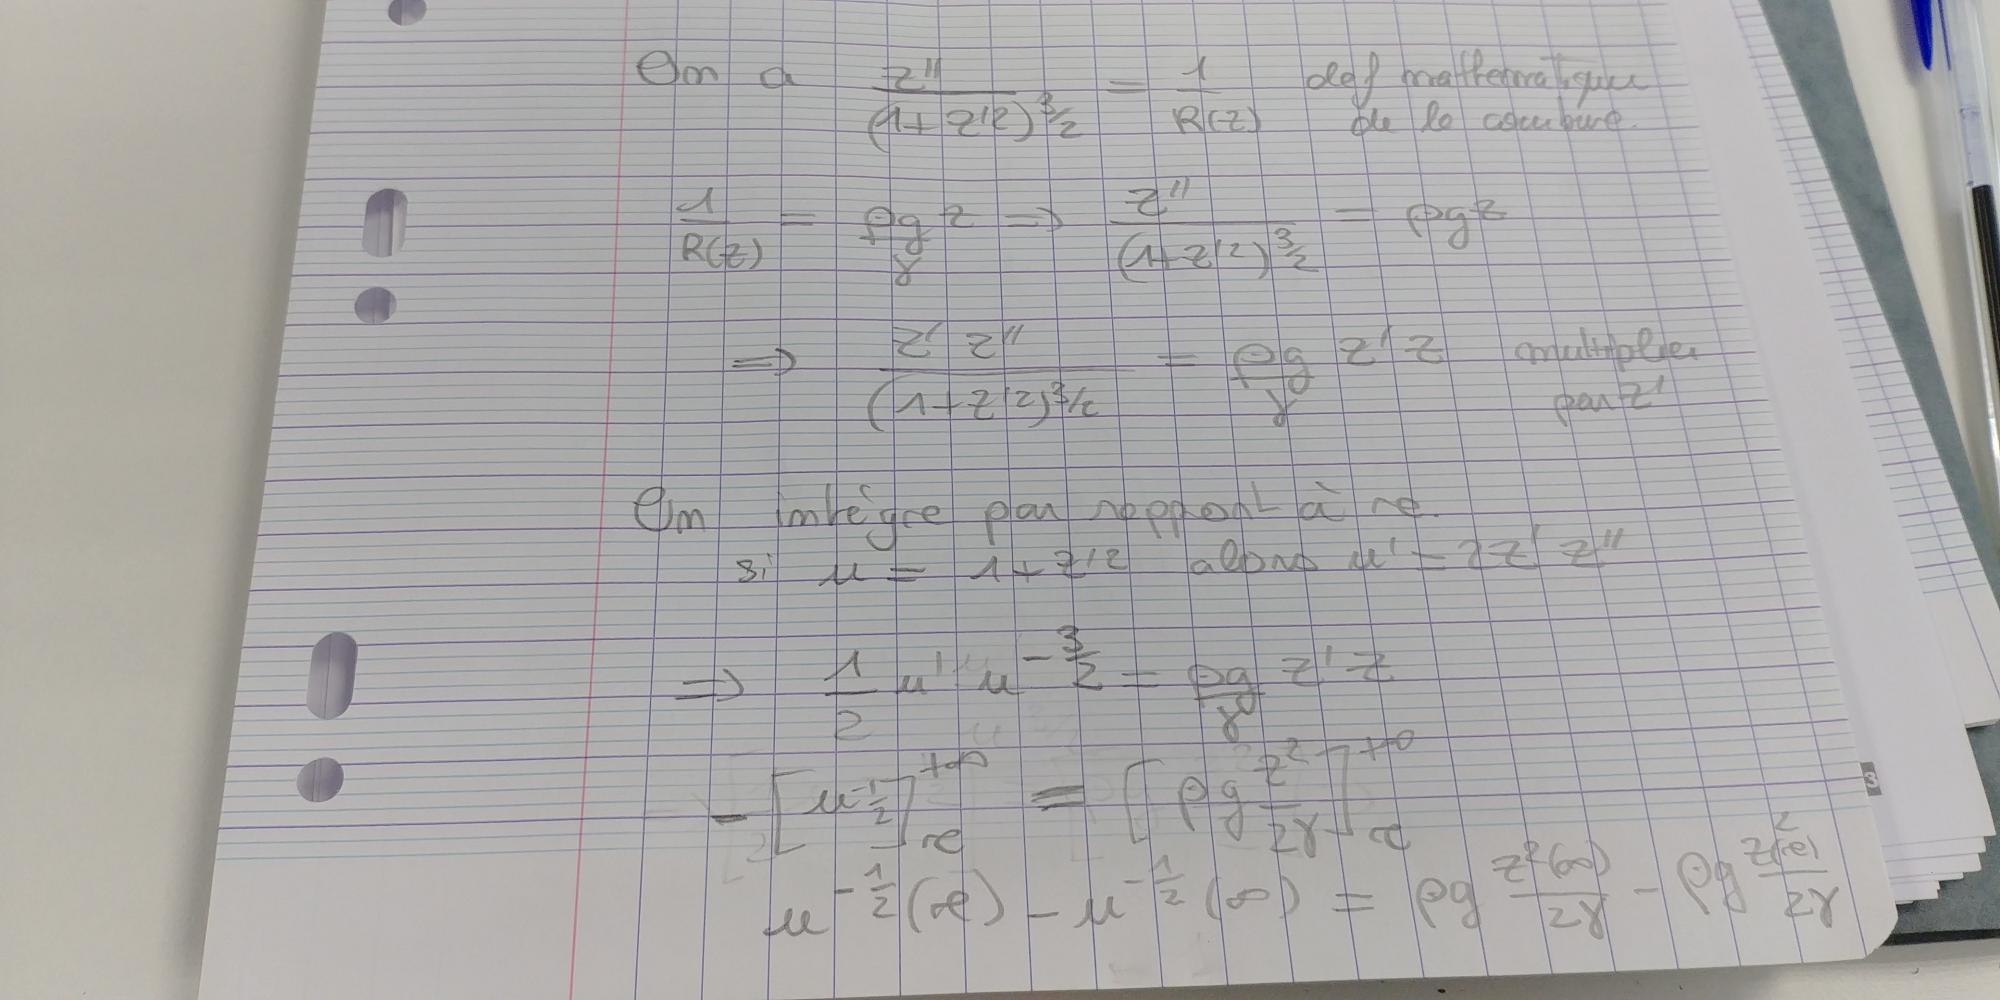 On a z''/(1+z'2)^3/2 = 1/R(z) def mathématique de la courbure.
1/R(z) = ρg/γ z => z''/(1+z'2)^3/2 = ρgz
=> z' z''/(1+z'2)^3/2 = ρg/γ z' z multiplier par z'
On intègre par rapport à x.
si u = 1+z'2 alors u' = 2z' z''
=> 1/2 u' u^-3/2 = ρg/γ z' z
- [u^-1/2]_x^+∞ = [ρg z²/2γ]_x^+∞
u^-1/2(x) - u^-1/2(∞) = ρg z²(∞)/2γ - ρg z²(x)/2γ
3